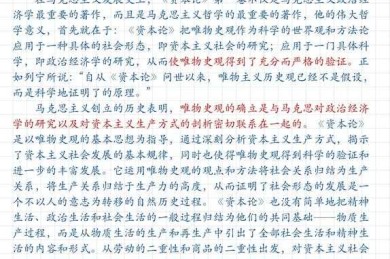 济学最重要的著作，而且是马克思主义哲学的最重要的著作，他的伟大哲
学意义，首先就在于：《资本论》把唯物史观作为科学的世界观和方法论
应用于一种具体的社会形态，即资本主义社会的研究；应用于一门具体科
学，即政治经济学的研究，从而使唯物史观得到了充分而严格的验证。正
如列宁所说：“自从《资本论》问世以来，唯物主义历史观已经不是假设，
而是科学地证明了的原理。”
马克思主义创立的历史表明，唯物史观的确立是与马克思对政治经济
学的研究以及对资本主义生产方式的剖析密切联系在一起的。《资本论》
是以唯物史观的基本思想为指导，通过深刻分析资本主义生产方式，揭示
了资本主义社会发展的基本规律，同时也使得唯物史观得到科学的验证和
进一步的丰富发展。它运用唯物史观的观点和方法将社会关系归结为生产
关系，将生产关系归结于生产力的高度，从而证明了社会形态的发展是一
个不以人的意志为转移的自然历史过程。《资本论》也没有简单地把精神
生活、政治生活和社会生活的一般过程归结为他们的共同基础——物质生
产过程，而是从物质生活的生产和再生产中引出了全部社会生活和精神生
活的内容和形式。从劳动的二重性和商品的二重性出发，对资本主义社会